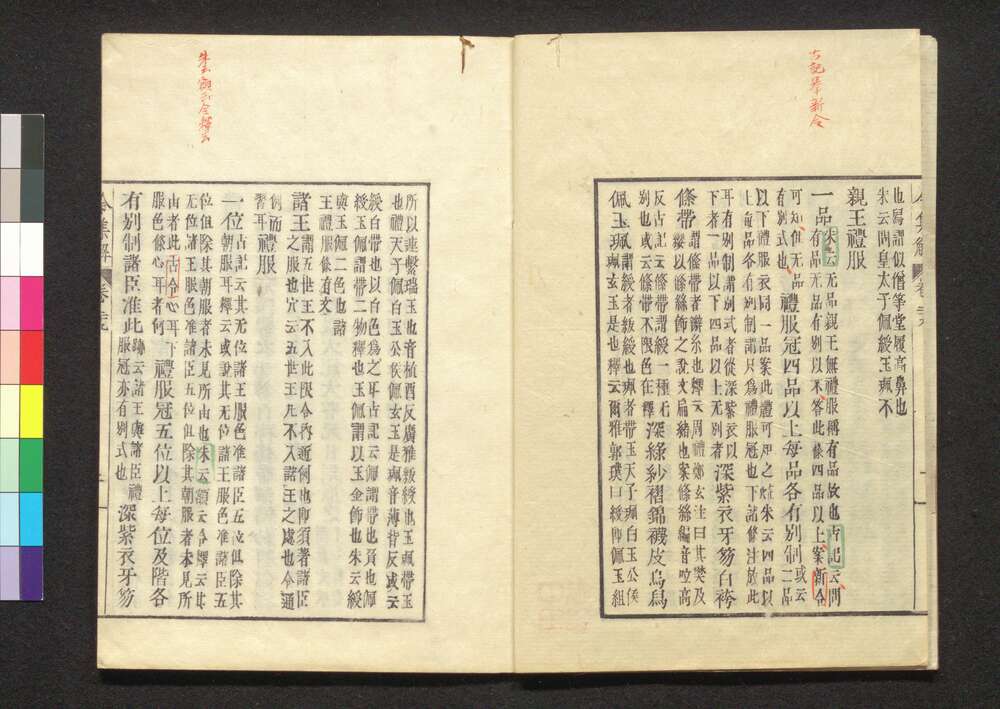 古記挙新令
也舄謂似僧等堂履高鼻也
朱云問皇太子佩綬玉珮不
親王禮服
一品
朱云无品親王無禮服稱有品故也古記云問
有品无品有別以不答此條四品以上案新令
可知但无品
有別式也
禮服冠四品以上每品各有別制
或云
二品
以下禮服衣同一品案此禮可知之在朱云四品以
上每品各有別制謂只爲禮服冠也下諸條注放此
耳有別制謂別式者從深紫衣以
下者一品以下四品以上无別者
深紫衣牙笏白袴
條帶
謂條帶者辮糸也釋云周禮鄭玄注曰其樊及
纓以絛絲飾之說文扁豬也案條絲編音哎高
反古記云條帶謂綬一種无
別也或云條帶不限色在釋
深緑紗褶錦襪皮烏舄
佩玉珮
謂綬者紱綬也珮者帶玉天子珮白玉公侯
珮玄玉是也釋云爾雅郭璞曰綬卽佩玉組
朱云額云令釋云
所以連繫瑞玉也音植酉反廣雅紱綬也玉珮帶玉
也禮天子佩白玉公侯佩玄玉是珮音薄背反或云
綬白帶也以白色爲之耳古記云佩謂帶也頁也佩
綬玉佩謂帶二物釋也玉佩謂以玉金飾也朱云綬
與玉佩二色也諸
王禮服條有文
諸王
謂五世王不入此限令內通何也卽須著諸臣
之服也穴云五世王凡不入諸王之處也令通
例而
習耳
禮服
一位
古記云其无位諸王服色准諸臣五位但除其
朝服耳釋云或說其无位諸王服色准諸臣五
位但除其朝服者未見所由也朱云額云令釋云其
无位諸王服色准諸臣五位但除其朝服者未見所
由者此古令心耳下
服色條心耳者何
禮服冠五位以上每位及階各
有別制諸臣准此
跡云諸王與諸臣禮
服冠亦有別式也
深紫衣牙笏